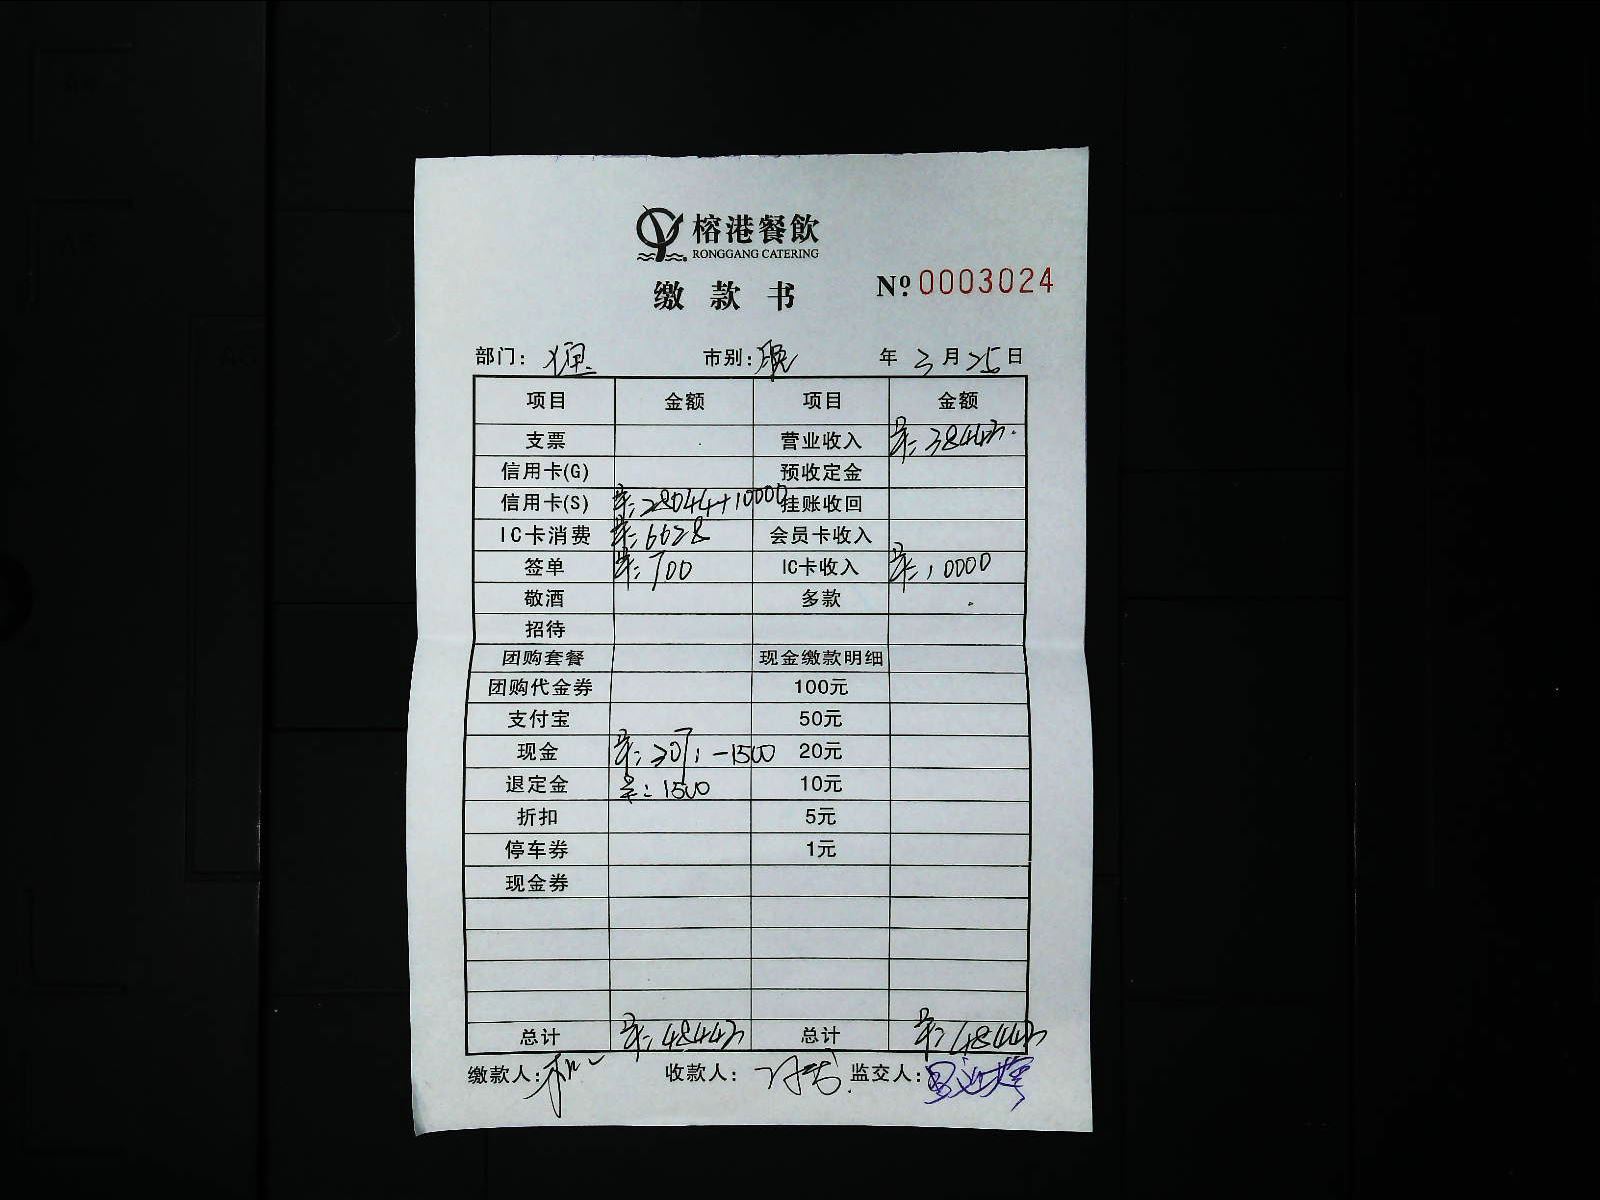 榕港餐飲
RONGGANG CATERING
缴款书 Nº 0003024
部门: 市别:晚 年 3月25日
项目 金额 项目 金额
支票 营业收入
信用卡(G) 预收定金
信用卡(S) 28044+10000 挂账收回
IC卡消费 6628 会员卡收入
签单 700 IC卡收入 10000
敬酒 多款
招待
团购套餐 现金缴款明细
团购代金券 100元
支付宝 50元
现金 -1500 20元
退定金 1500 10元
折扣 5元
停车券 1元
现金券
总计 总计
缴款人: 收款人: 监交人: